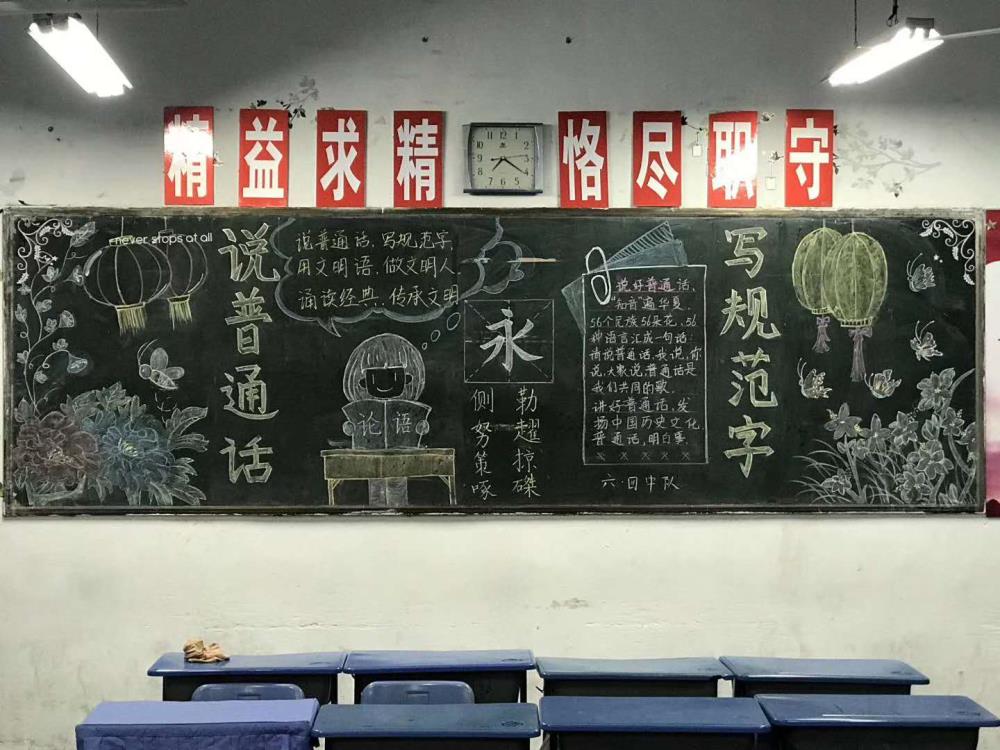 精益求精 恪尽职守
never stops at all
说普通话
说普通话、写规范字
用文明语、做文明人
诵读经典、传承文明
论语
永
侧 勒
努 趯
策 掠
啄 磔
说好普通话,
"知音"遍华夏.
56个民族56朵花,56
种语言汇成一句话:
请说普通话,我说,你
说,大家说,普通话是
我们共同的歌.
讲好普通话,发
扬中国历史文化.
普通话,明白
六·四中队
写规范字